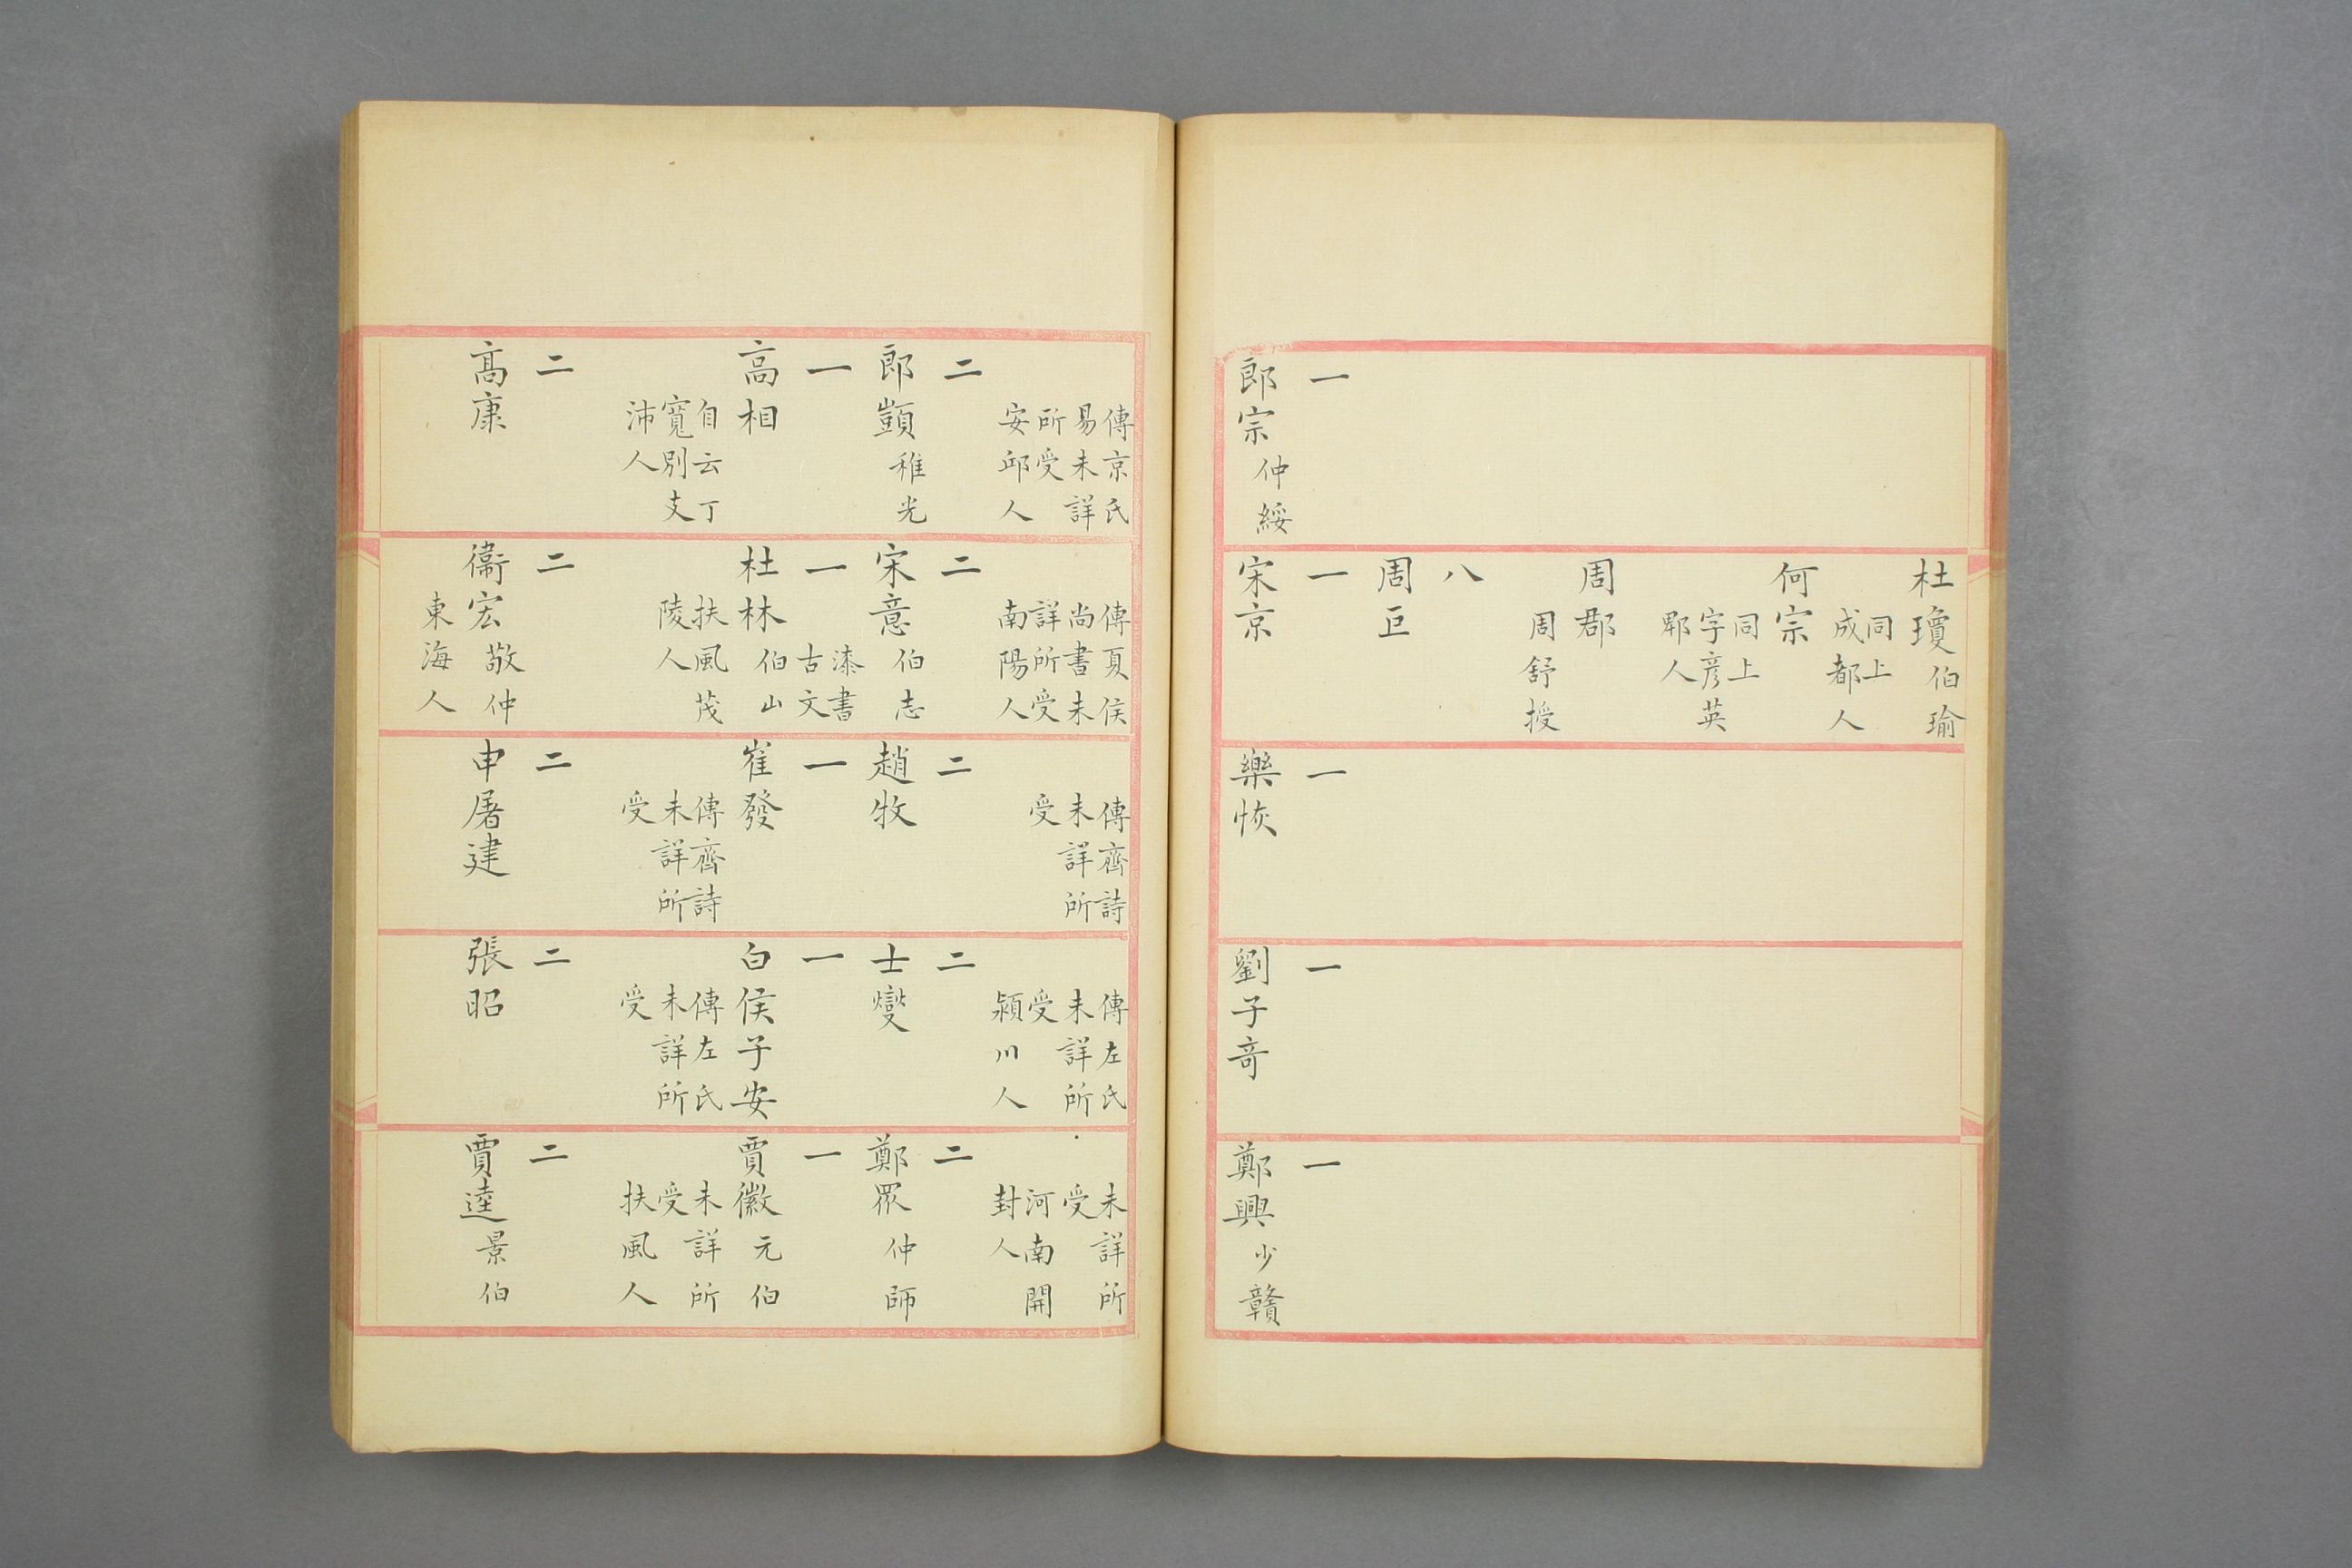 一
郎宗仲綏
杜瓊伯瑜
同上
成都人
何宗
同上
字彦英
郫人
周郡
周舒授
八
周巨
一
宋京
一
樂恢
一
劉子竒
一
鄭興少贛
傳京氏
易未詳
所受
安邱人
二
郎顗稚光
一
高相
自云丁
寬別支
沛人
二
髙康
傳夏侯
尚書未
詳所受
南陽人
二
宋意伯志
漆書
古文
一
杜林伯山
扶風茂
陵人
二
衞宏敬仲
東海人
傳齊詩
未詳所
受
二
趙牧
一
崔發
傳齊詩
未詳所
受
二
申屠建
傳左氏
未詳所
受
潁川人
二
士燮
一
白侯子安
傳左氏
未詳所
受
二
張昭
未詳所
受
河南開
封人
二
鄭眾仲師
一
賈徽元伯
未詳所
受
扶風人
二
賈逵景伯